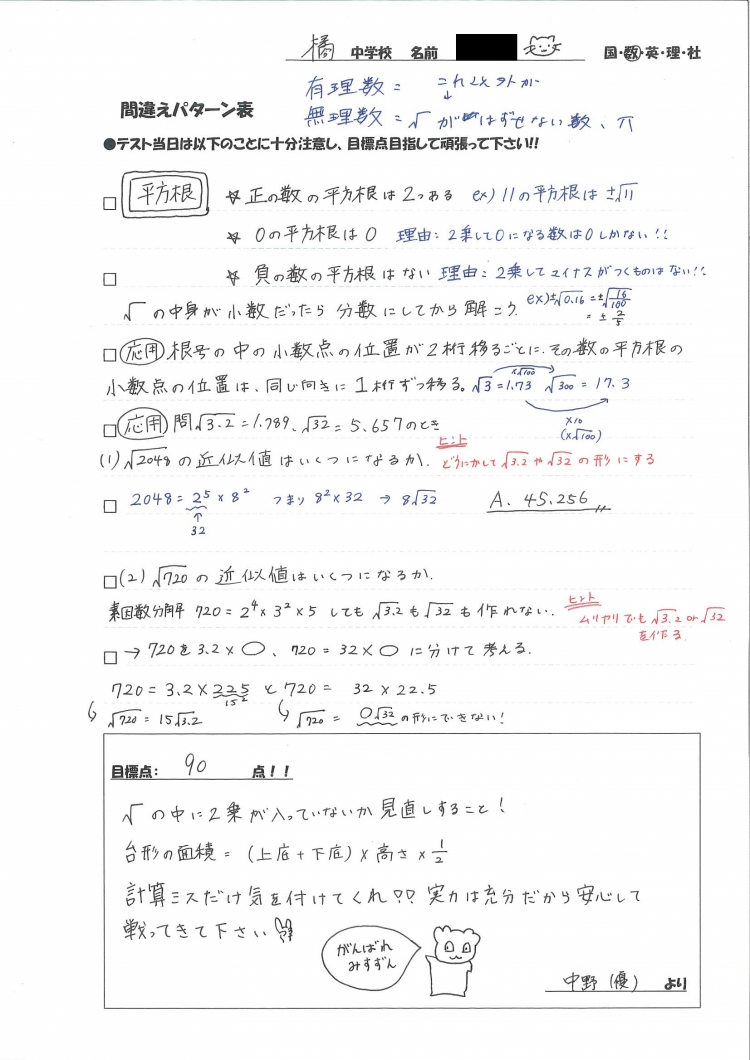 橘 中学校 名前 国・数・英・理・社
有理数 = これ以外
無理数 = √ がはずせない数、π
間違えパターン表
●テスト当日は以下のことに十分注意し、目標点目指して頑張って下さい!!
□ 平方根 ☆ 正の数の平方根は2つある ex) 11の平方根は ±√11
☆ 0の平方根は0 理由:2乗して0になる数は0しかない!!
□ ☆ 負の数の平方根はない 理由:2乗してマイナスがつくものはない!!
√ の中身が小数だったら分数にしてから解こう. ex) ±√0.16 = ±√16/100
= ± 2/5
□ 応用 根号の中の小数点の位置が2桁移るごとに、その数の平方根の
小数点の位置は、同じ向きに1桁ずつ移る。 √3 = 1.73 √300 = 17.3
×√100
×10
(×√100)
□ 応用 問 √3.2 = 1.789、√32 = 5.657のとき
(1) √2048 の近似値はいくつになるか. ヒント どうにかして√3.2や√32の形にする
□ 2048 = 2⁵ × 8² つまり 8² × 32 → 8√32 A. 45.256
↑
32
□ (2) √720 の近似値はいくつになるか.
素因数分解 720 = 2⁴ × 3² × 5 しても √3.2も√32も作れない. ヒント ムリヤリでも√3.2 or √32
を作る
□ → 720を3.2×〇、720 = 32×〇に分けて考える.
720 = 3.2 × 225 と 720 = 32 × 22.5
15²
√720 = 15√3.2 √720 = 〇√32 の形にできない!
目標点: 90 点!!
√ の中に2乗が入っていないか見直しすること!
台形の面積 = (上底 + 下底) × 高さ × 1/2
計算ミスだけ気を付けてくれ♡♡ 実力は充分だから安心して
戦ってきて下さい
がんばれ
みすずん
中野(優) より